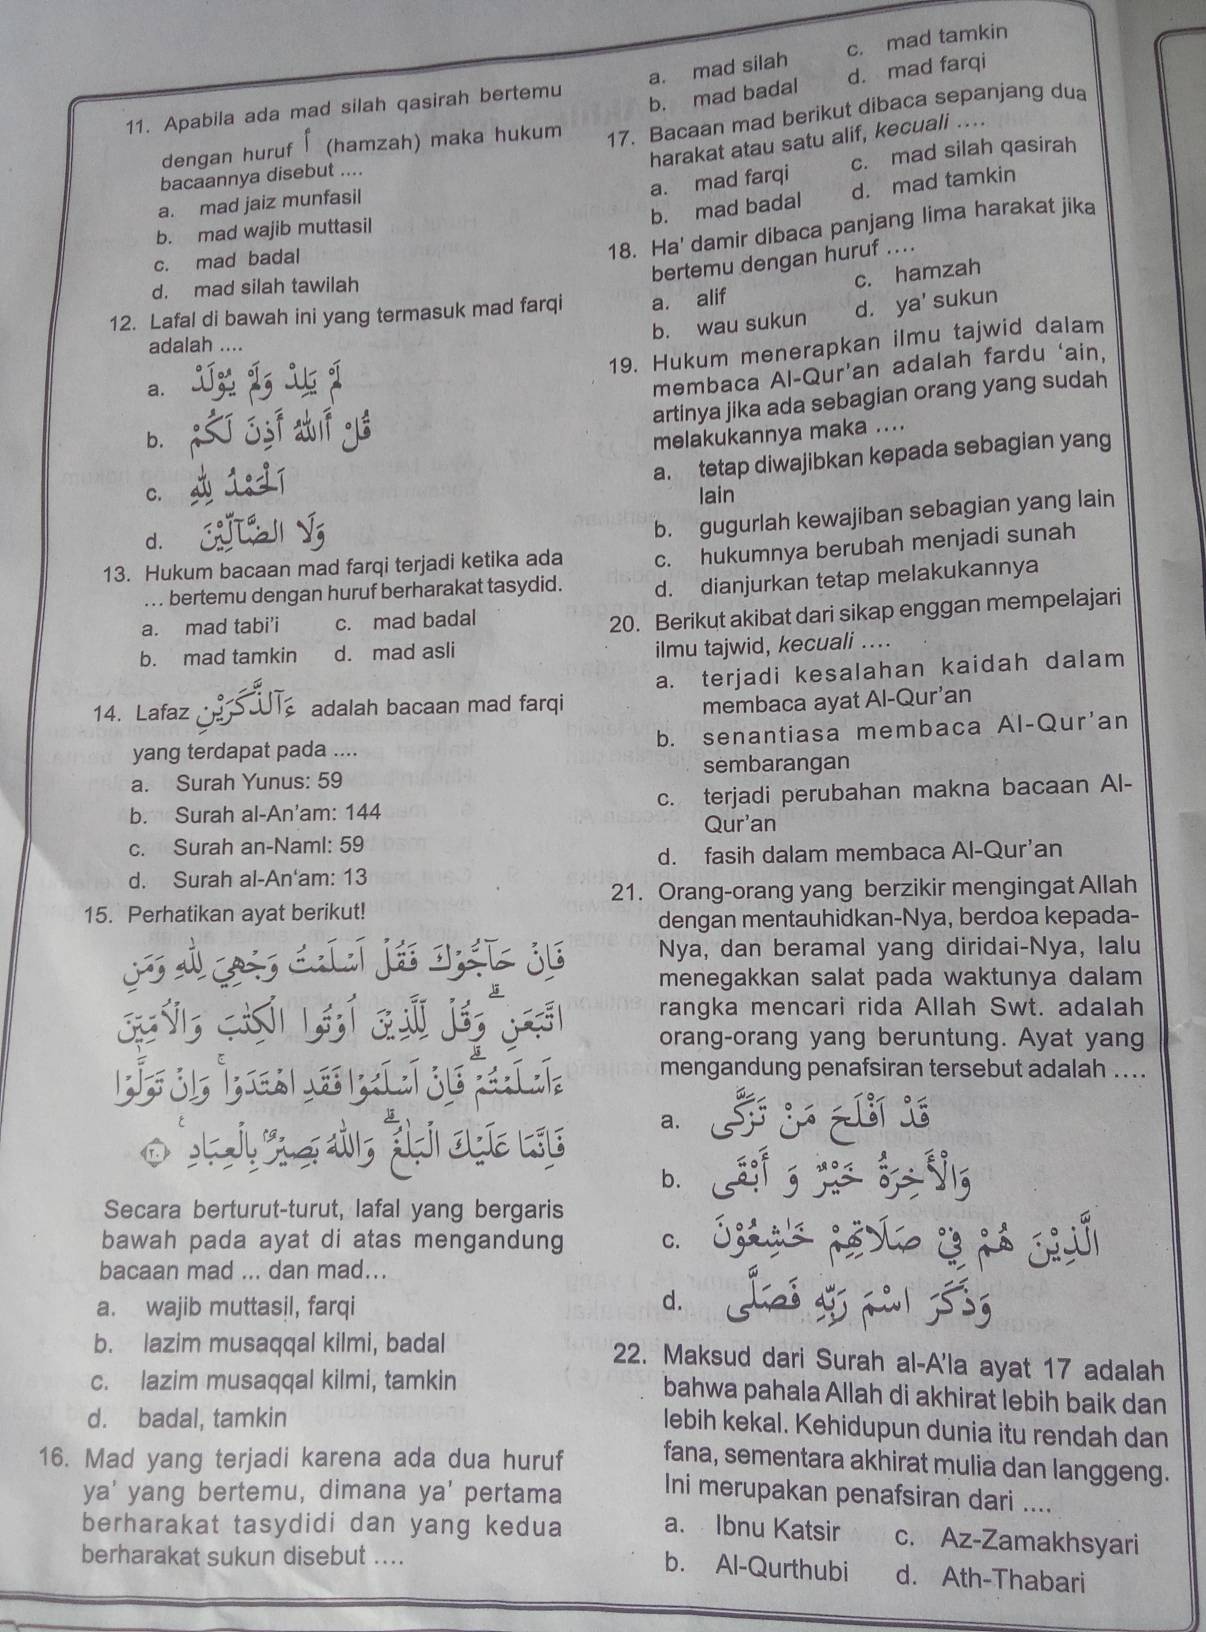 11. Apabila ada mad silah qasirah bertemu
dengan huruf أ (hamzah) maka hukum
bacaannya disebut ....
a. mad jaiz munfasil
b. mad wajib muttasil
c. mad badal
d. mad silah tawilah
12. Lafal di bawah ini yang termasuk mad farqi
adalah ....
a. لَمْ يَلِدْ وَلَمْ يُوْلَدْ
b. قُلْ آللهُ أَذِنَ لَكُمْ
c. اَلْحَمْدُ لِلّٰهِ
d. وَلَا الضَّآلِّيْنَ
13. Hukum bacaan mad farqi terjadi ketika ada
... bertemu dengan huruf berharakat tasydid.
a. mad tabi'i
c. mad badal
b. mad tamkin
d. mad asli
14. Lafaz ءٰۤالذَّكَرَيْنِ adalah bacaan mad farqi
yang terdapat pada ....
a. Surah Yunus: 59
b. Surah al-An'am: 144
c. Surah an-Naml: 59
d. Surah al-An'am: 13
15. Perhatikan ayat berikut!
فَاِنْ حَاۤجُّوْكَ فَقُلْ اَسْلَمْتُ وَجْهِيَ لِلّٰهِ وَمَنِ
اتَّبَعَنِ ۗ وَقُلْ لِّلَّذِيْنَ اُوْتُوا الْكِتٰبَ وَالْاُمِّيّٖنَ
ءَاَسْلَمْتُمْ ۗ فَاِنْ اَسْلَمُوْا فَقَدِ اهْتَدَوْا ۚ وَاِنْ تَوَلَّوْا
فَاِنَّمَا عَلَيْكَ الْبَلٰغُ ۗ وَاللّٰهُ بَصِيْرٌۢ بِالْعِبَادِ ۚ ٢٠
Secara berturut-turut, lafal yang bergaris
bawah pada ayat di atas mengandung
bacaan mad ... dan mad...
a. wajib muttasil, farqi
b. lazim musaqqal kilmi, badal
c. lazim musaqqal kilmi, tamkin
d. badal, tamkin
16. Mad yang terjadi karena ada dua huruf
ya' yang bertemu, dimana ya' pertama
berharakat tasydidi dan yang kedua
berharakat sukun disebut ....
a. mad silah
c. mad tamkin
b. mad badal
d. mad farqi
17. Bacaan mad berikut dibaca sepanjang dua
harakat atau satu alif, kecuali ....
a. mad farqi
c. mad silah qasirah
b. mad badal
d. mad tamkin
18. Ha' damir dibaca panjang lima harakat jika
bertemu dengan huruf ....
a. alif
c. hamzah
b. wau sukun
d. ya' sukun
19. Hukum menerapkan ilmu tajwid dalam
membaca Al-Qur'an adalah fardu 'ain,
artinya jika ada sebagian orang yang sudah
melakukannya maka ....
a. tetap diwajibkan kepada sebagian yang
lain
b. gugurlah kewajiban sebagian yang lain
c. hukumnya berubah menjadi sunah
d. dianjurkan tetap melakukannya
20. Berikut akibat dari sikap enggan mempelajari
ilmu tajwid, kecuali ....
a. terjadi kesalahan kaidah dalam
membaca ayat Al-Qur'an
b. senantiasa membaca Al-Qur'an
sembarangan
c. terjadi perubahan makna bacaan Al-
Qur'an
d. fasih dalam membaca Al-Qur'an
21. Orang-orang yang berzikir mengingat Allah
dengan mentauhidkan-Nya, berdoa kepada-
Nya, dan beramal yang diridai-Nya, lalu
menegakkan salat pada waktunya dalam
rangka mencari rida Allah Swt. adalah
orang-orang yang beruntung. Ayat yang
mengandung penafsiran tersebut adalah ....
a. قَدْ اَفْلَحَ مَنْ تَزَكّٰى
b. وَالْاٰخِرَةُ خَيْرٌ وَّاَبْقٰى
c. الَّذِيْنَ هُمْ فِيْ صَلَاتِهِمْ خٰشِعُوْنَ
d. وَذَكَرَ اسْمَ رَبِّهٖ فَصَلّٰى
22. Maksud dari Surah al-A'la ayat 17 adalah
bahwa pahala Allah di akhirat lebih baik dan
lebih kekal. Kehidupun dunia itu rendah dan
fana, sementara akhirat mulia dan langgeng.
Ini merupakan penafsiran dari ....
a. Ibnu Katsir
c. Az-Zamakhsyari
b. Al-Qurthubi
d. Ath-Thabari